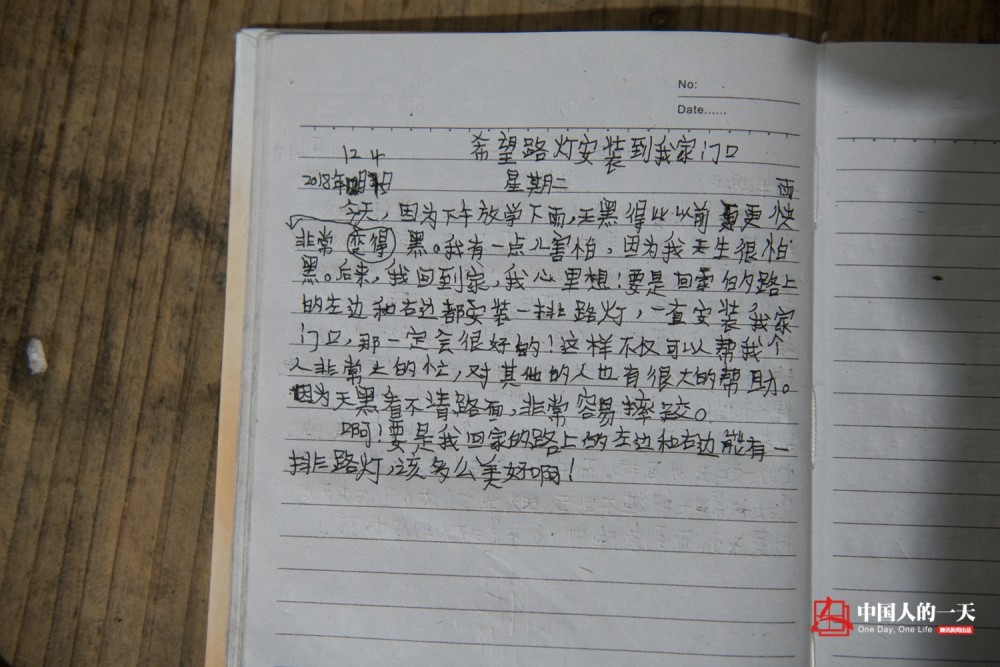 No:
Date......
希望路灯安装到我家门口
12 4
2018年 星期二 雨
今天，因为下午放学下雨，天黑得比以前更快
非常变得黑。我有一点儿害怕，因为我天生很怕
黑。后来，我回到家，我心里想！要是回家的路上
的左边和右边都安装一排路灯，一直安装我家
门口，那一定会很好的！这样不仅可以帮我个
人非常大的忙，对其他的人也有很大的帮助。
因为天黑看不清路面，非常容易摔跤。
啊！要是我回家的路上的左边和右边能有一
排路灯，该多么美好啊！
中国人的一天
One Day, One Life 腾讯新闻出品